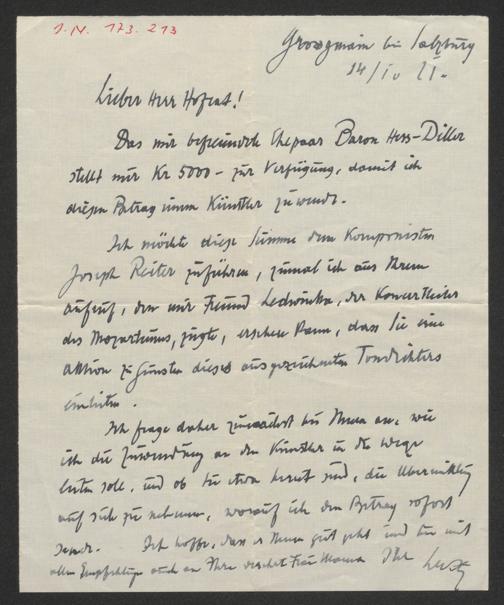 I.N. 173.213
Grossgmain bei Salzburg
14/IV 21.
Lieber Herr Hofrat!
Das mir befreundete Ehepaar Baron Hess-Diller
stellt mir Kr 5000 - zur Verfügung, damit ich
diesen Betrag einem Künstler zuwende.
Ich möchte diese Summe dem Komponisten
Joseph Reiter zuführen, zumal ich aus Ihrem
Aufruf, den mir Freund Ledwinka, der Konzertleiter
des Mozarteums, zeigte, ersehen kann, dass Sie eine
Aktion zu Gunsten dieses ausgezeichneten Tondichters
einleiten.
Ich frage daher zunächst bei Ihnen an, wie
ich die Zuwendung an den Künstler in die Wege
leiten soll, und ob Sie etwa bereit sind, die Übermittlung
auf sich zu nehmen, worauf ich den Betrag sofort
sende. Ich hoffe, dass es Ihnen gut geht und bin mit
allen Empfehlungen auch an Ihre verehrte Frau Mama Ihr